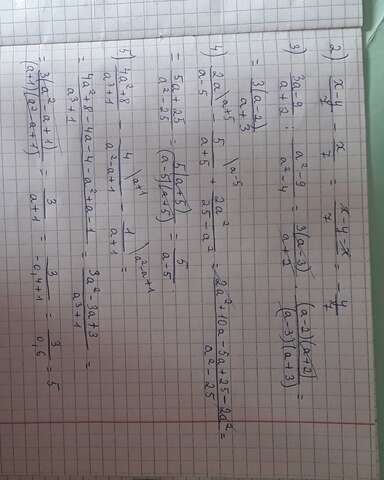 2) (x-y)/7 - x/7 = (x-y-x)/7 = -y/7
3) (3a-9)/(a+2) : (a²-9)/(a²-4) = 3(a-3)/(a+2) · (a-2)(a+2)/((a-3)(a+3)) =
= 3(a-2)/(a+3)
4) 2a\a+5/(a-5) - 5\a-5/(a+5) + 2a²/(25-a²) = (2a²+10a-5a+25-2a²)/(a²-25) =
= (5a+25)/(a²-25) = 5(a+5)/((a-5)(a+5)) = 5/(a-5)
5) (4a²+8)/(a³+1) - 4\a+1/(a²-a+1) - 1\a²-a+1/(a+1) =
= (4a²+8-4a-4-a²+a-1)/(a³+1) = (3a²-3a+3)/(a³+1) =
= 3(a²-a+1)/((a+1)(a²-a+1)) = 3/(a+1) = 3/(-0,4+1) = 3/0,6 = 5